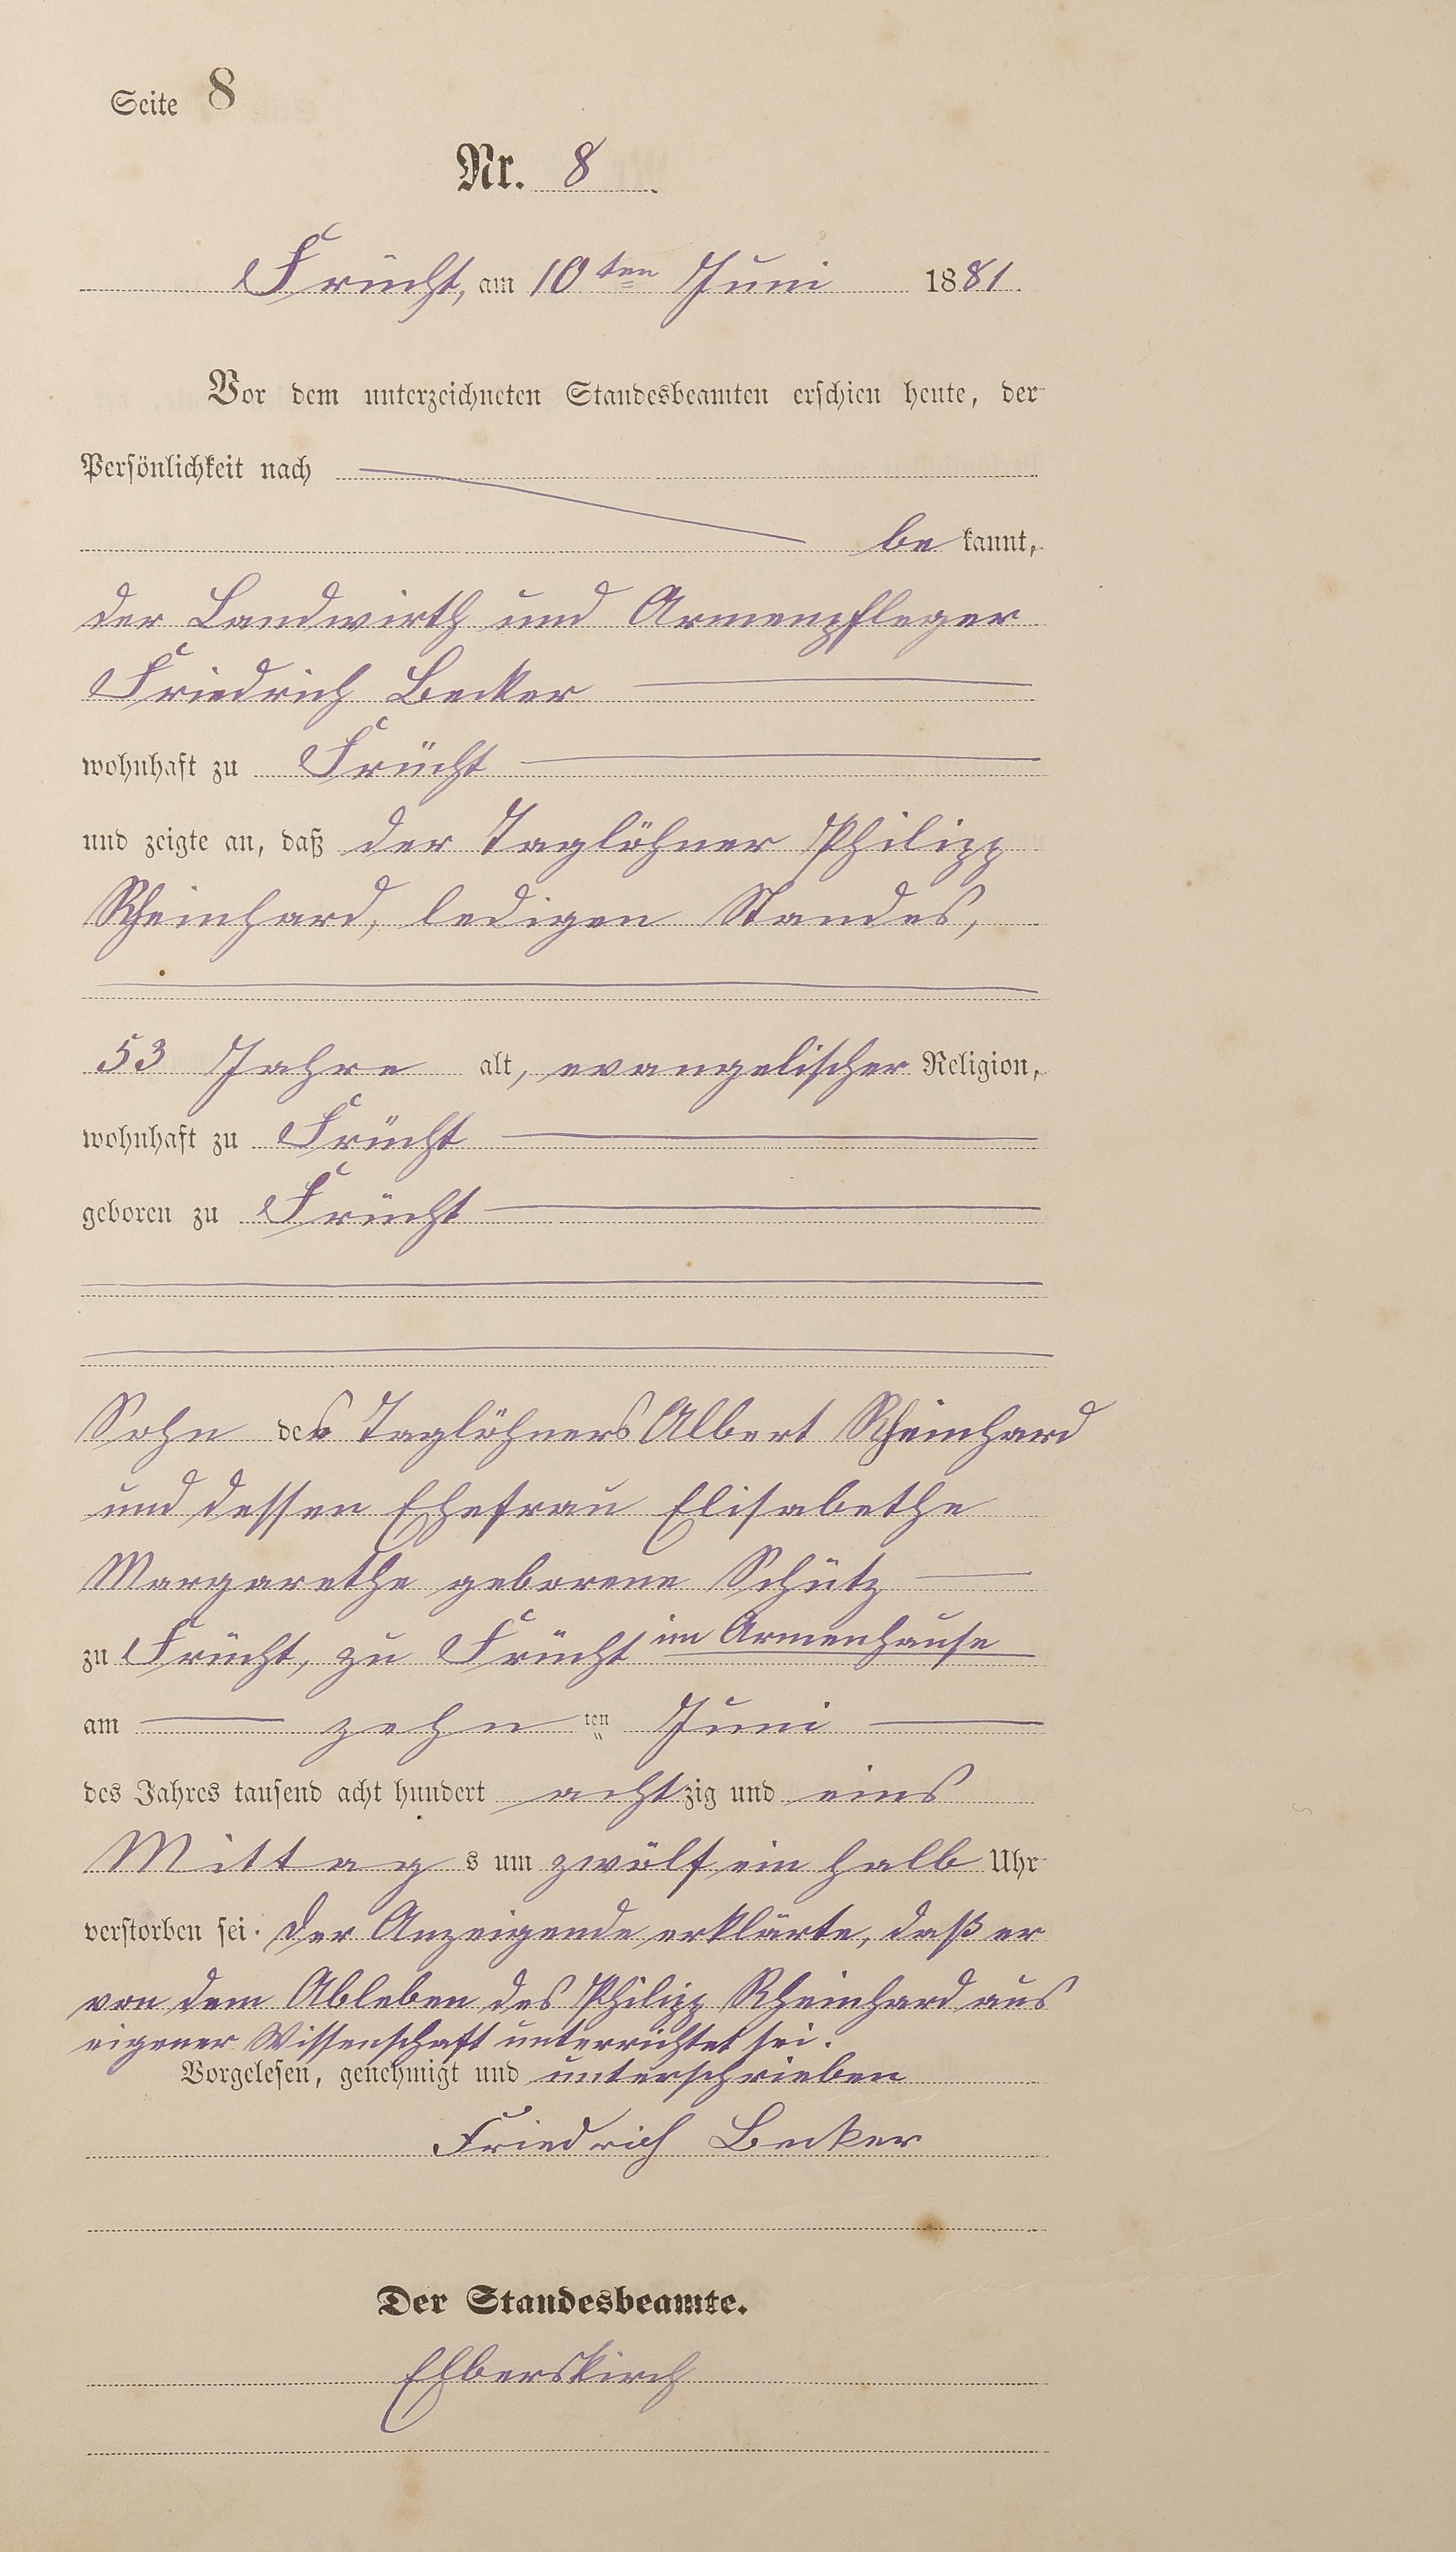 Seite 8
Nr. 8.
Frücht, am 10ten Juni 1881.
Vor dem unterzeichneten Standesbeamten erschien heute, der
Persönlichkeit nach
be kannt,
der Landwirth und Armenpfleger
Friedrich Becker
wohnhaft zu Frücht
und zeigte an, daß der Taglöhner Philipp
Rheinhard, ledigen Standes,
53 Jahre alt, evangelischer Religion,
wohnhaft zu Frücht
geboren zu Frücht
Sohn des Taglöhners Albert Rheinhard
und dessen Ehefrau Elisabethe
Margarethe geborene Schütz
zu Frücht, zu Frücht im Armenhause
am zehn ten Juni
des Jahres tausend acht hundert achtzig und eins
Mittag s um zwölf ein halb Uhr
verstorben sei. Der Anzeigende erklärte, daß er
von dem Ableben des Philipp Rheinhard aus
eigener Wissenschaft unterrichtet sei.
Vorgelesen, genehmigt und unterschrieben
Friedrich Becker
Der Standesbeamte.